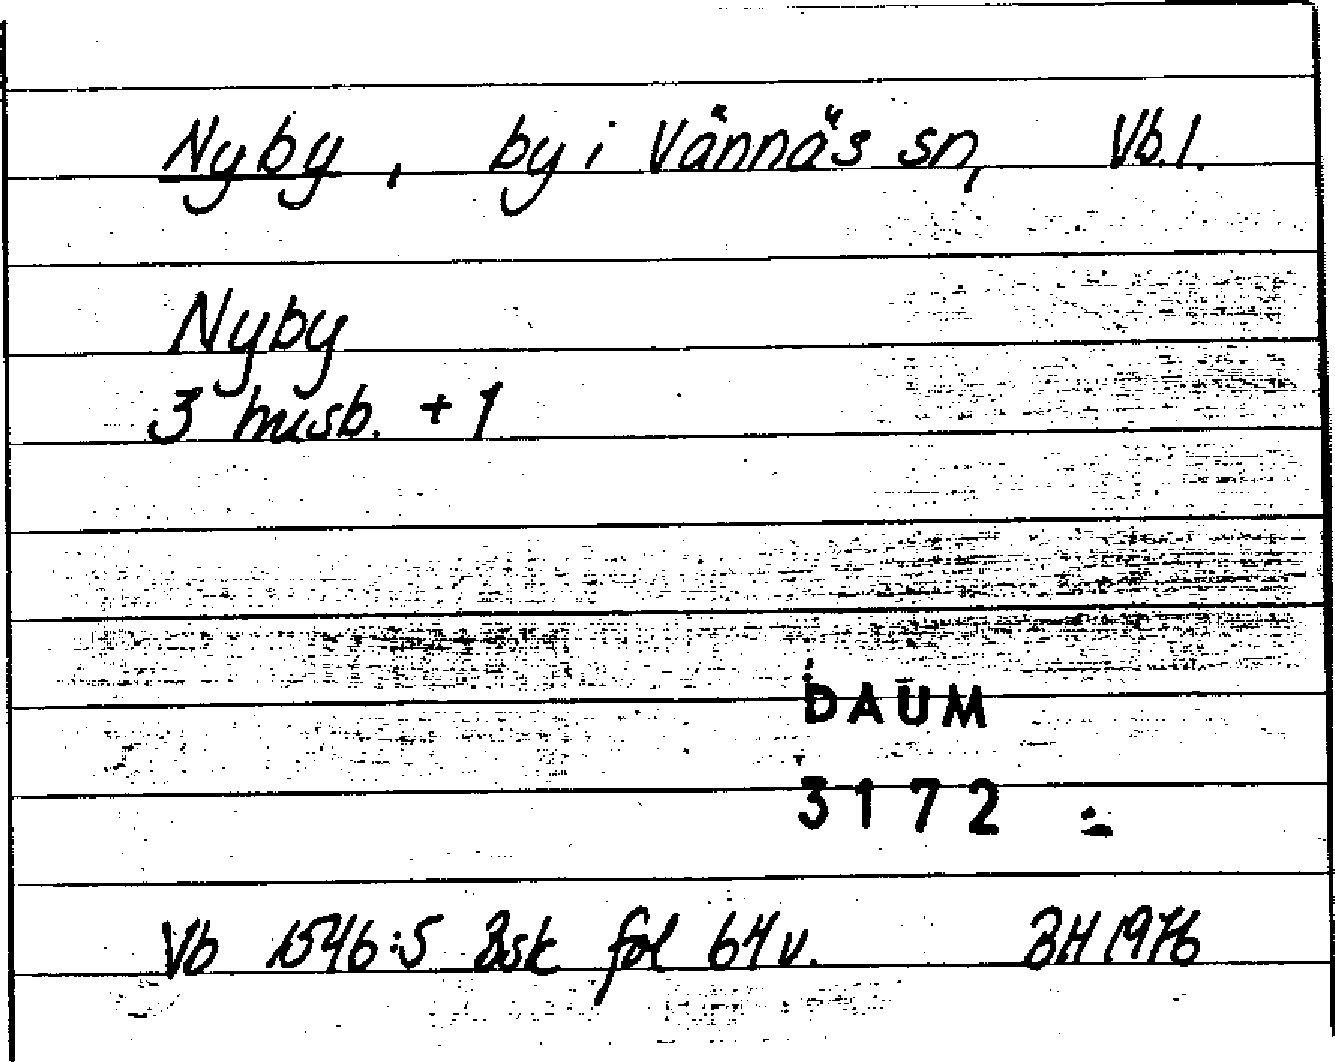 Nyby, by i Vännäs sn, Vb.l.
Nyby
3 husb. + 1
DAUM
3172
Vb 1546:5 Bsk fol 64 v. BH 1976